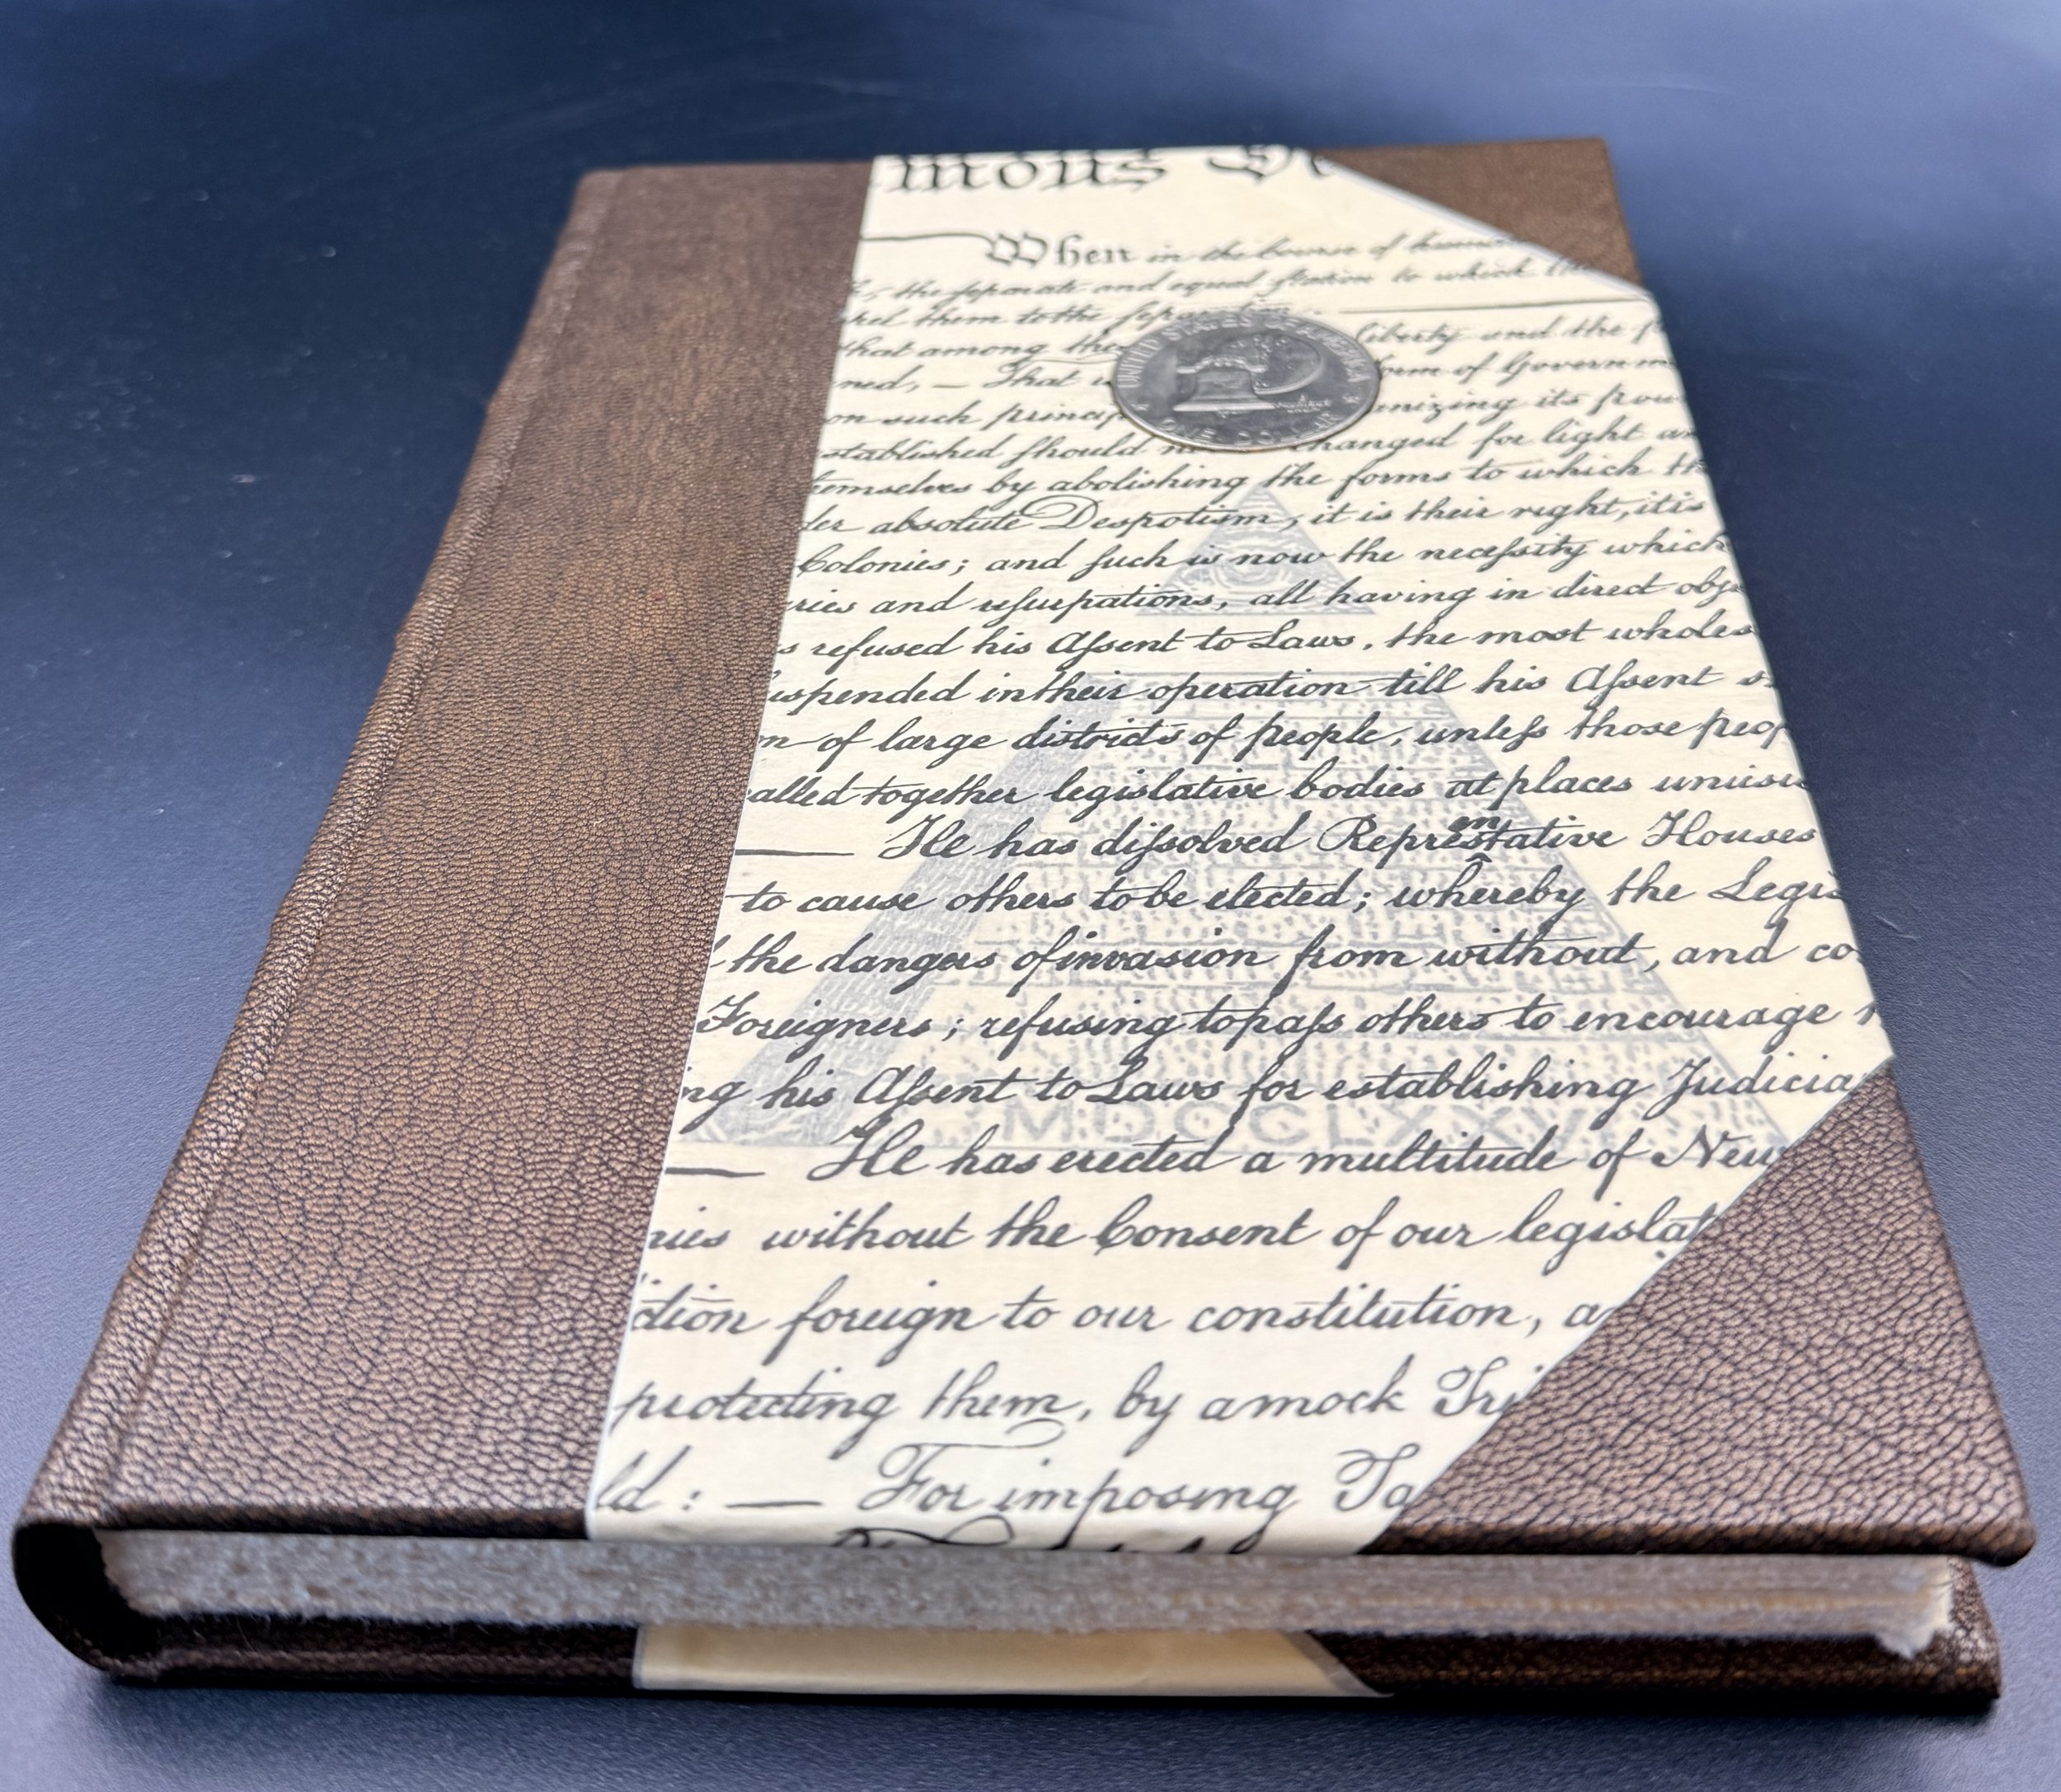 mous De
When in the Course of human
, the separate and equal station to which the
pel them to the separation.
that among these Liberty and the p
ned, — That form of Governm
on such princip anizing its pow
stablished should no changed for light an
hemselves by abolishing the forms to which th
der absolute Despotism, it is their right, it is
Colonies; and such is now the necessity which
uries and usurpations, all having in direct obje
s refused his Assent to Laws, the most wholes
suspended in their operation till his Assent s
on of large districts of people, unless those peop
called together legislative bodies at places unusu
— He has dissolved Representative Houses
to cause others to be elected; whereby the Legis
the dangers of invasion from without, and co
Foreigners; refusing to pass others to encourage
ng his Assent to Laws for establishing Judicia
MDCCLXXVI
— He has erected a multitude of New
nies without the Consent of our legislat
ction foreign to our constitution, a
protecting them, by a mock Tri
ld: — For imposing Ta
UNITED STATES OF AMERICA
E PLURIBUS UNUM
ONE DOLLAR